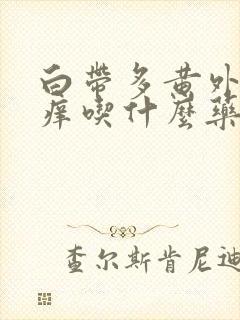 白帶多黃外
癢喫什麼藥
查尔斯肯尼迪